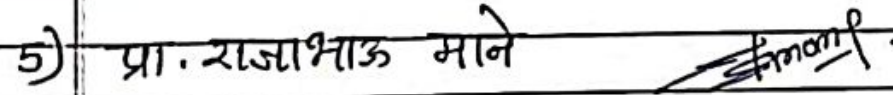 5) प्रा. राजाभाऊ माने